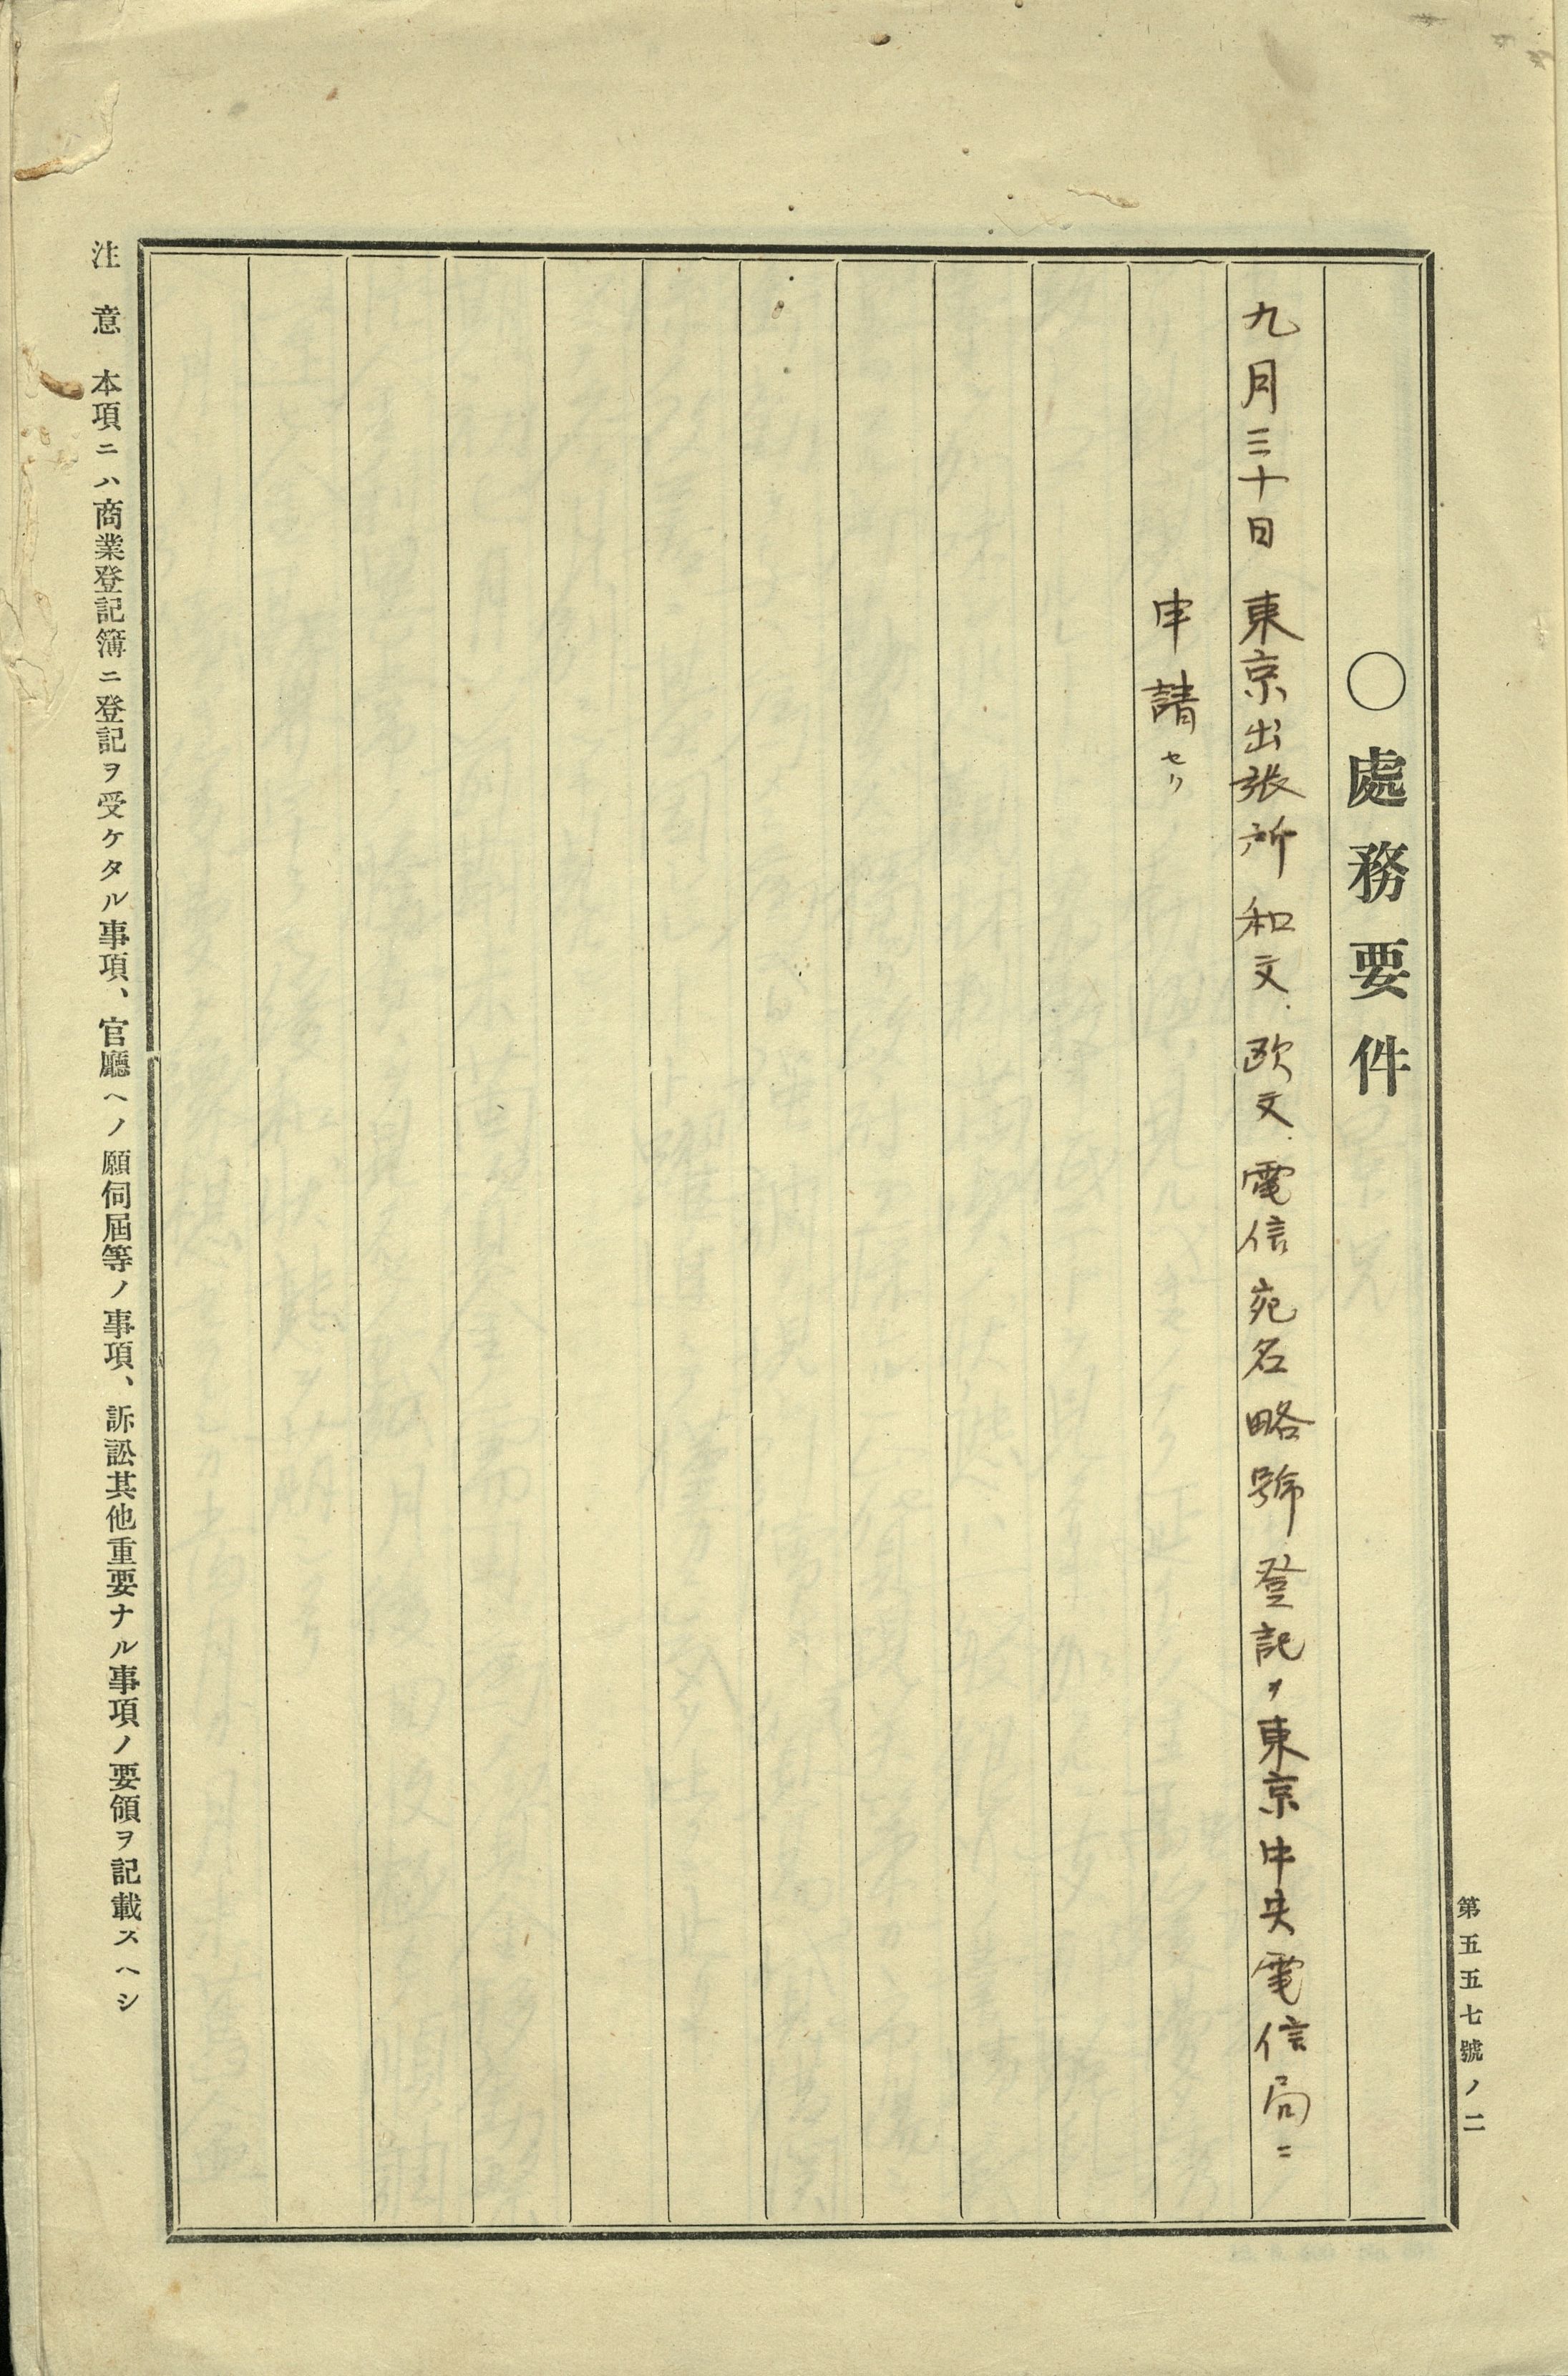 第五五七號ノ二
〇處務要件
九月三十日 東京出張所和文.欧文.電信宛名略號登記ヲ東京中央電信局ニ
申請セリ
注意 本項ニハ商業登記簿ニ登記ヲ受ケタル事項、官廳ヘノ願伺屆等ノ事項、訴訟其他重要ナル事項ノ要領ヲ記載スヘシ